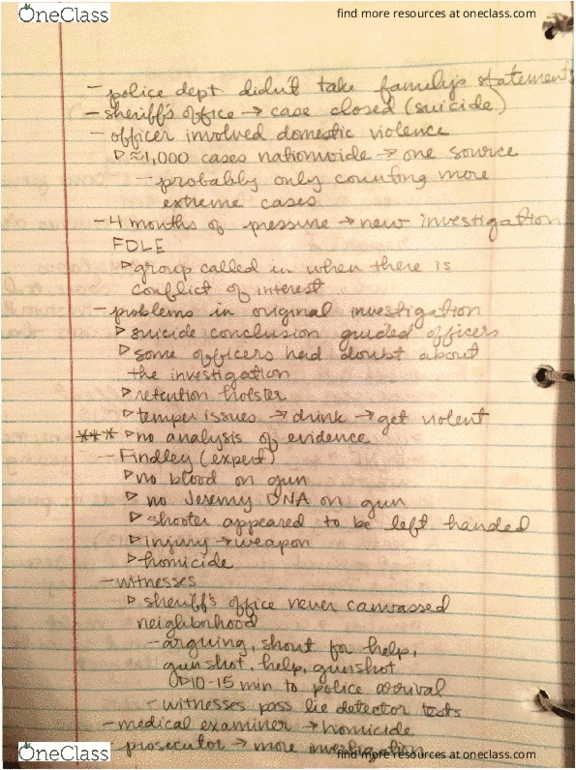 OneClass
find more resources at oneclass.com
- police dept didn't take family's statements
- sheriff's office → case closed (suicide)
- officer involved domestic violence
▷ ≈1,000 cases nationwide → one source
- probably only counting more
extreme cases
- 4 months of pressure → new investigation
FDLE
▷ group called in when there is
conflict of interest
- problems in original investigation
▷ suicide conclusion guided officers
▷ some officers had doubt about
the investigation
▷ retention holster
▷ temper issues → drink → get violent
*** ▷ no analysis of evidence
- Findley (expert)
▷ no blood on gun
▷ no Jeremy DNA on gun
▷ shooter appeared to be left handed
▷ injury → weapon
▷ homicide
- witnesses
▷ sheriff's office never canvassed
neighborhood
- arguing, shout for help,
gun shot, help, gunshot
▷ 10-15 min to police arrival
- witnesses pass lie detector tests
- medical examiner → homicide
- prosecutor → more investigation
OneClass
find more resources at oneclass.com